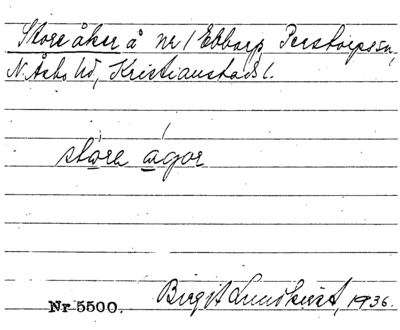 Store åker å nr 1 Ebbarp Perstorps sn,
N. Åsbo hd, Kristianstads l.
störe ägor
Birgit Lundkvist, 1936.
Nr 5500.